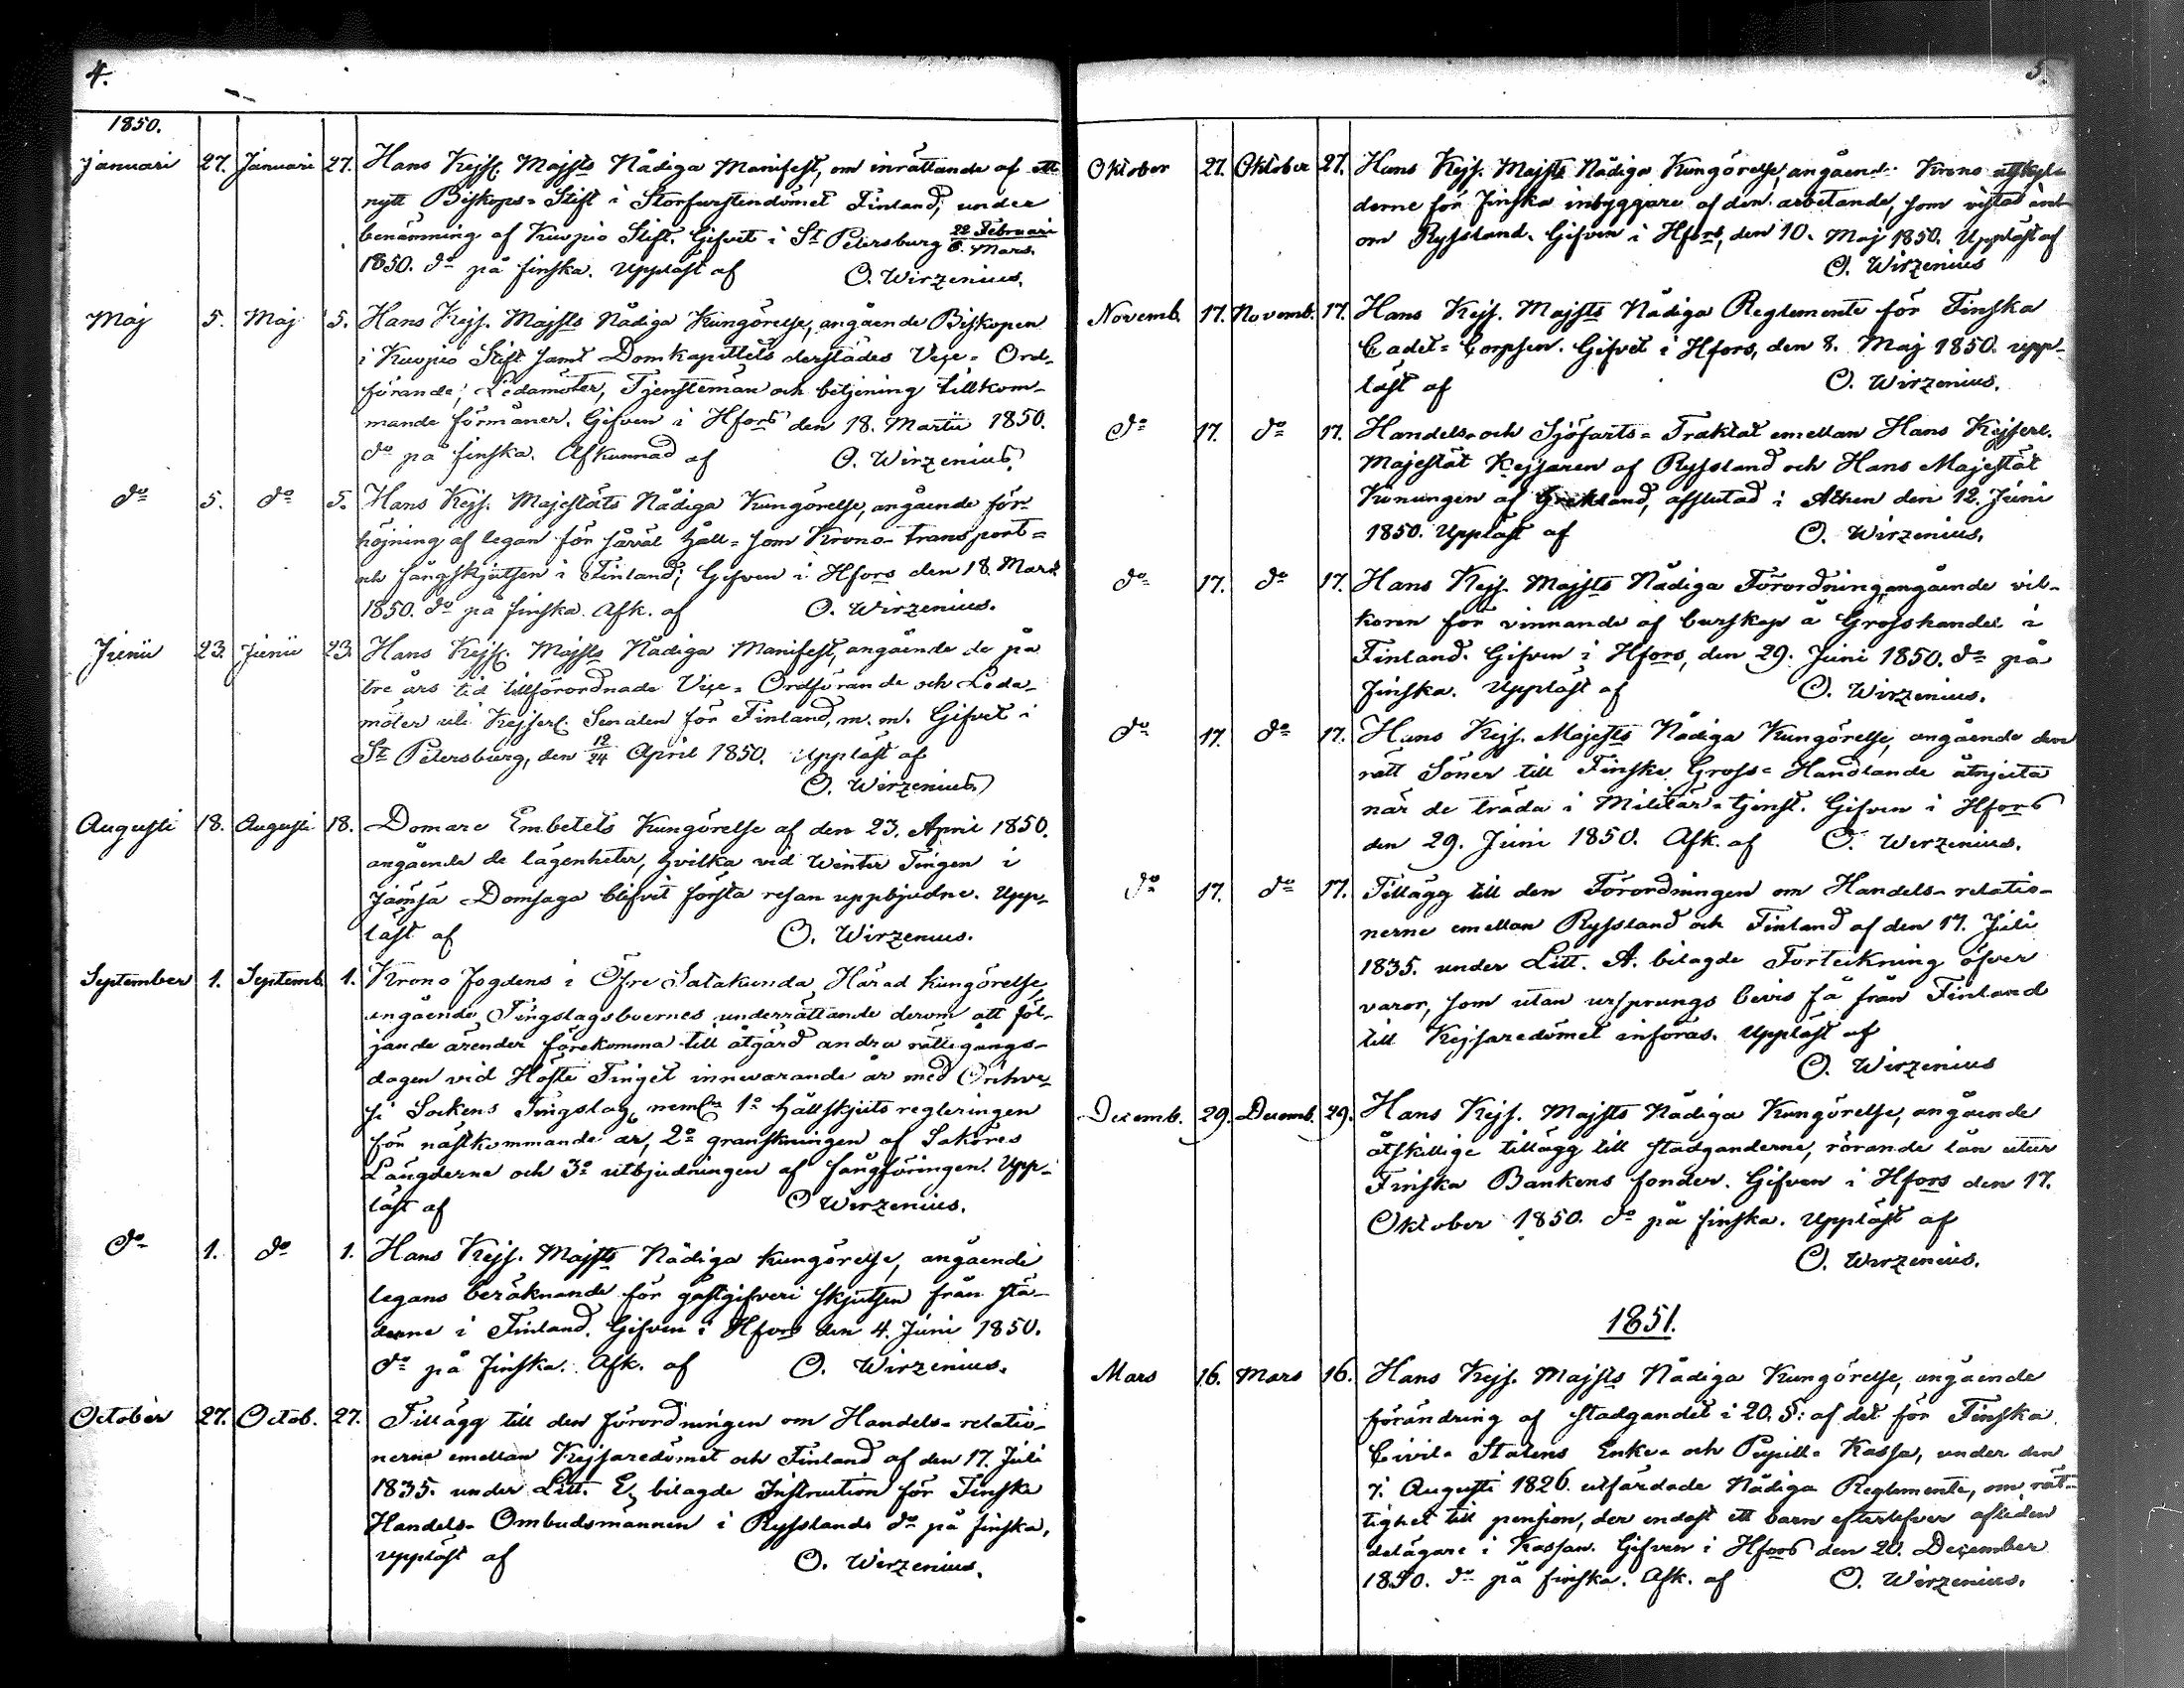 4.
1850.
Januari 27. Januari 27. Hans Kejs. Majsts Nådiga Manifest, om inrättande af ett
nytt Biskops=Stift i Storfurstendömet Finland, under
benämning af Kuopio Stift. Gifvit i St Petersburg 22 Februari / 6. Mars.
1850. do på finska. Uppläst af O. Wirzenius.
Maj 5. Maj 5. Hans Kejs. Majsts Nådiga Kungörelse, angående Biskopen
i Kuopio Stift samt Domkapittels derstädes Viçe=Ord-
förande, Ledamöter, Tjenstemän och betjening tillkom-
mande förmåner. Gifven i Hfors den 18. Martii 1850.
do på finska. Afkunnad af O. Wirzenius.
do 5. do 5. Hans Kejs. Majestäts Nådiga Kungörelse, angående för-
höjning af legan för såväl håll= som Krono-transport=
och fångskjutsen i Finland; Gifven i Hfors den 18. Mars
1850. do på finska. Afk. af O. Wirzenius.
Junii 23. Junii 23. Hans Kejs. Majsts Nådiga Manifest, angående de på
tre års tid tillförordnade Viçe=Ordförande och Leda-
möter uti Kejserl. Senaten för Finland, m. m. Gifvet i
St Petersburg, den 12/24 April 1850. Uppläst af
O. Wirzenius.
Augusti 18. Augusti 18. Domare Embetets Kungörelse af den 23. April 1850.
angående de lägenheter, hvilka vid Winter Tingen i
Jämsä Domsaga blifvit första resan uppbjudne. Upp-
läst af O. Wirzenius.
September 1. Septemb. 1. Krono Fogdens i Öfre Satakunda Härad kungörelse
angående Tingslagsboernes underrättande derom att föl-
jande ärender förekomma till åtgärd andra rättegångs-
dagen vid Höste Tinget innevarande år med Orihve-
si Sockens Tingslag, neml. 1o hållskjuts regleringen
för nästkommande år, 2o granskningen af Saköres
Längderne och 3o utbjudningen af fångföringen. Upp-
läst af O Wirzenius.
do 1. do 1. Hans Kejs. Majsts Nådiga kungörelse, angående
legans beräknande för gästgifveri skjutsen från stä-
derne i Finland. Gifven i Hfors den 4. Juni 1850.
do på finska. Afk. af O. Wirzenius.
October 27. Octob. 27. Tillägg till den förordningen om Handels-relatio-
nerne emellan Kejsaredömet och Finland af den 17. Juli
1835. under Litt. E, bilagde Instruction för Finska
Handels-Ombudsmannen i Ryssland do på finska,
uppläst af O. Wirzenius.
5.
Oktober 27. Oktober 27. Hans Kejs. Majsts Nådiga Kungörelse, angående Krono utskyl-
derne för Finska inbyggare af den arbetande, som vistas
om Ryssland. Gifven i Hfors, den 10. Maj 1850. Uppläst af
O. Wirzenius
Novemb. 17. Novemb. 17. Hans Kejs. Majsts Nådiga Reglemente för Finska
Cadet=Corpsen. Gifvet i Hfors, den 8. Maj 1850. upp-
läst af O. Wirzenius.
do 17. do 17. Handels- och Sjöfarts=Traktat emellan Hans Kejserl.
Majestät Kejsaren af Ryssland och Hans Majestät
Konungen af Grekland, afslutad i Athen den 12. Juni
1850. Uppläst af O. Wirzenius.
do 17. do 17. Hans Kejs. Majsts Nådiga Förordning angående vil-
koren för vinnande af burskap å Grosshandel i
Finland. Gifven i Hfors, den 29. Juni 1850. do på
finska. Uppläst af O. Wirzenius.
do 17. do 17. Hans Kejs. Majests Nådiga Kungörelse, angående den
rätt Söner till Finske Gross=Handlande åtnjuta
när de träda i Militär=tjenst. Gifven i Hfors
den 29. Juni 1850. Afk. af O. Wirzenius.
do 17. do 17. Tillägg till den Förordningen om Handels-relatio-
nerne emellan Ryssland och Finland af den 17. Juli
1835. under Litt. A. bilagde Forteckning öfver
varor, som utan ursprungs bevis få från Finland
till Kejsaredömet införas. Uppläst af
O. Wirzenius
Decemb. 29. Decemb. 29. Hans Kejs. Majsts Nådiga Kungörelse, angående
åtskillige tillägg till stadganderne, rörande lån utur
Finska Bankens fonder. Gifven i Hfors den 17.
Oktober 1850. do på finska. Uppläst af
O. Wirzenius.
1851.
Mars 16. Mars 16. Hans Kejs. Majsts Nådiga Kungörelse, angående
förändring af stadgandet i 20. §: af det för Finska
Civil=Statens Enke= och Pupill=Kassa, under den
7. Augusti 1826. utfärdade Nådiga Reglemente, om rät-
tighet till pension, der endast ett barn efterlefver afliden
delägare i Kassan. Gifven i Hfors den 20. Deçember
1850. do på finska. Afk. af O. Wirzenius.